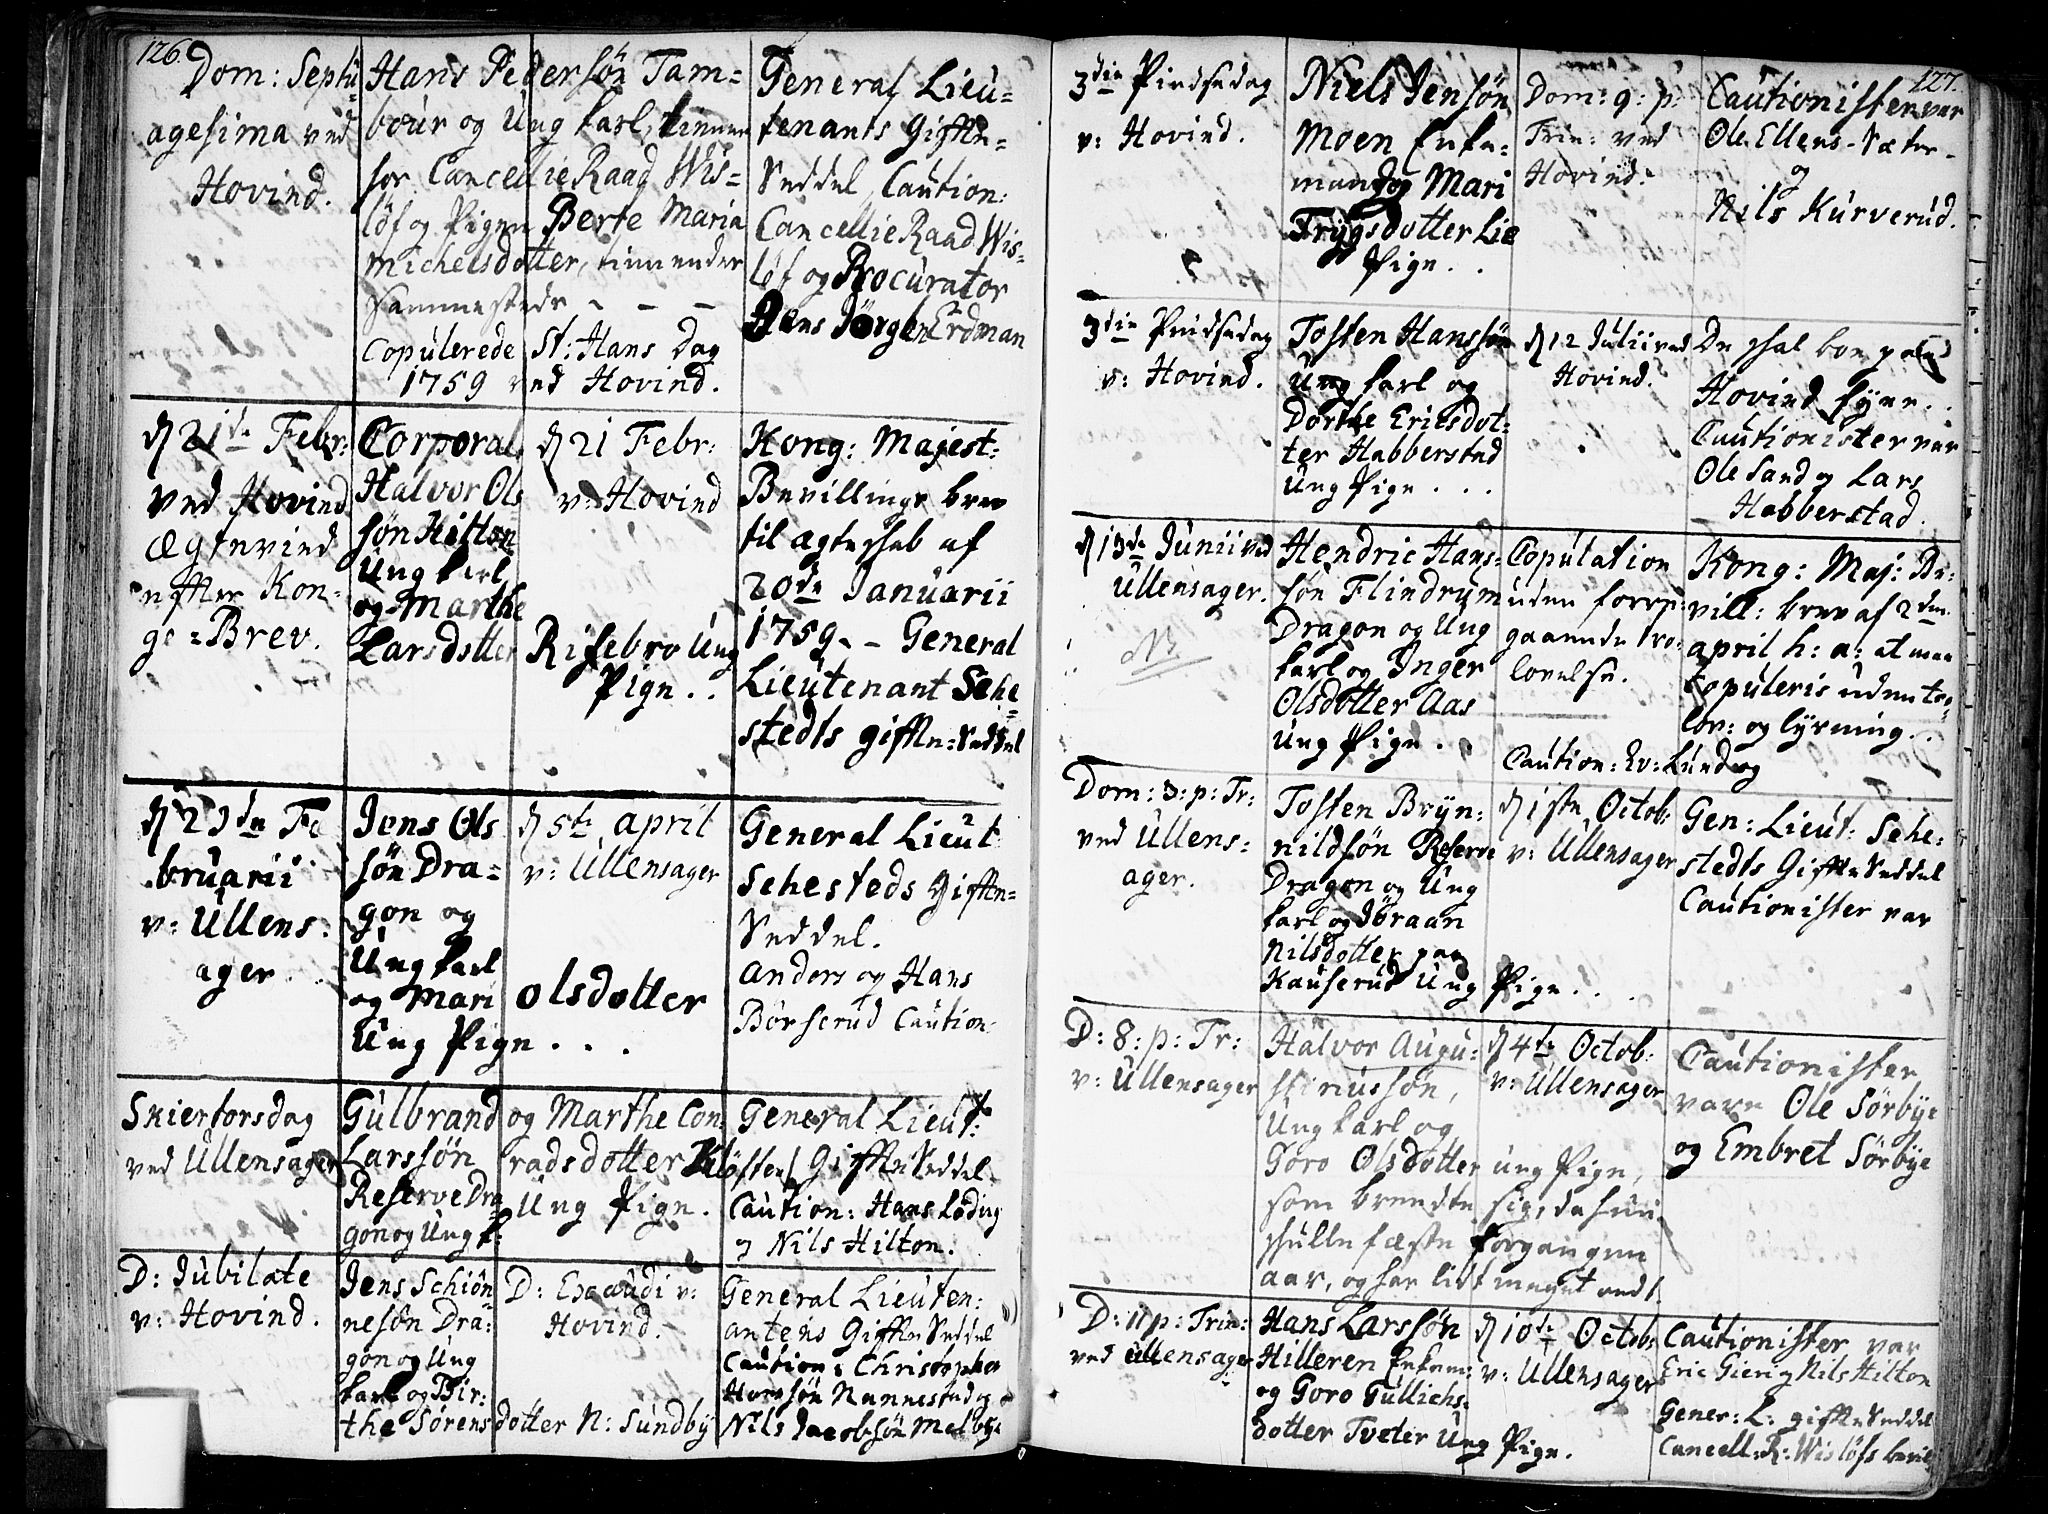 126.
Dom: Septu-
agesima ved
Hovind.
Hans Pedersøn Tam-
bour og Ung karl, tienner
hos CancellieRaad Wis-
løf og Pigen Berte Maria
Michelsdotter, tiennender
sammesteds - - -
Copulerede St: Hans Dag
1759 ved Hovind.
General Lieu-
tenants Giffte-
Seddel, Caution:
CancellieRaad Wis-
løf og Procurator
Jens Jørgen Erdman
d 21de Febr:
ved Hovind
Ægteviede
effter Kon-
ge-Brev.
Corporal
Halvor Ols
søn Hilton
Ung karl
og Marthe
Larsdotter
d 21 Febr:
v: Hovind
Risebro Ung
Pige . .
Kong: Majest:
Bevillings brev
til ægteskab af
20de Januarii
1759 - - General
Lieutenant Sehe-
stedts giffte-Seddel
d 23de Fe
bruarii
v: Ullens:
ager.
Jens Ols
søn Dra-
gon og
Ung karl
og Mari
Ung Pige . . .
d 5te April
v: Ullensager
Olsdotter
General Lieut
Sehesteds Giffte-
Seddel.
Anders og Hans
Børserud Caution:
Skiertorsdag
ved Ullensager
Gulbrand
Larssøn
Reserve Dra-
gon og Ung k:
og Marthe Con-
radsdotter Kløften
Ung Pige.
General Lieut:
Giffte Seddel
Caution: Hans Løding
og Nils Hilton.
D: Jubilate
v: Hovind.
Jens Schiøn
nesøn Dra-
gon og Ung
karl og Bir-
the Sørens
D: Exaudi v:
Hovind.
dotter N: Sundby
General Lieuten:
antens Giffte Seddel
Caution: Christopher
Hanssøn Nannestad og
Nils Jacobsøn Melbye
127.
3die Pindsedag
v: Hovind.
Niels Jensøn
Moen Enke-
mand og Mari
Trygsdotter Lie
Pige . .
Dom: 9: p:
Trin: ved
Hovind.
Cautionister var
Ole Ellens-Sæter
og
Nils Kurverud.
3die Pindsedag
v: Hovind.
Tosten Hanssøn
Ung karl og
Dorthe Ericsdot-
ter Habberstad
Ung Pige . . .
d 12 Julii ved
Hovind.
De skal boe paa
Hovind Eyer . .
Cautionister var
Ole Sand og Lars
Habberstad.
d 13de Junii ved
Ullensager.
NB
Hendric Hans-
søn Flindrum
Dragon og Ung
karl og Inger
Olsdotter Aas
Ung Pige . .
Copulation
uden foreg:
gaaende tro-
lovelse.
Caution: Ev: Lund og
Kong: Maj: Be-
vill: brev af 2den
april h: a: at maa
Copuleris uden tro-
lov: og lysning . .
Dom: 3: p: Tr:
ved Ullens-
ager.
Tosten Bryn-
nildsøn Reserve
Dragon og Ung
karl og Jøraan
Nilsdotter paa
Kauserud Ung Pige . . .
d 1ste Octob:
v: Ullensager
Gen: Lieut: Sehe-
stedts Giffte Seddel
Cautionister var
D: 8: p: Tr:
v: Ullensager
Halvor Augu-
stinussøn,
Ung karl og
Goro Olsdotter ung Pige,
som brendte sig, da hun
skulle fæste forgangen
aar, og har lidt meget ondt.
d 4te Octob:
v: Ullensager
Cautionister
vare Ole Sørbye
og Embret Sørbye
D: 11 p: Trin:
ved Ullensager
Hans Larssøn
Hilleren Enkem:
og Goro Gullichs-
dotter Tveter Ung Pige.
d 10de Octob:
v: Ullensager
Cautionister var
Eric Gien og Nils Hilton
Gener: L: giffte Seddel
Cancell: R: Wisløfs bevil: